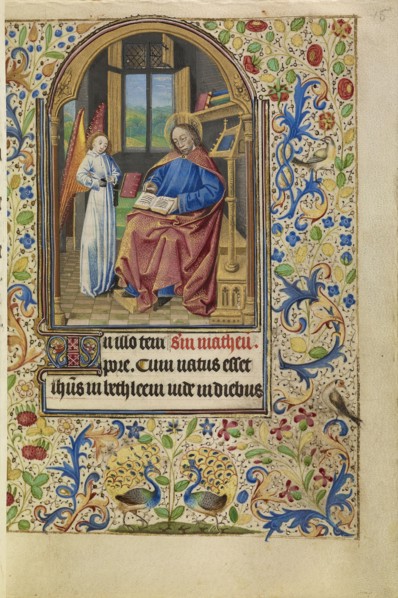 15
In illo tem Scm matheu.
pore. Cum natus esset
ihūs in bethleem iude in diebus